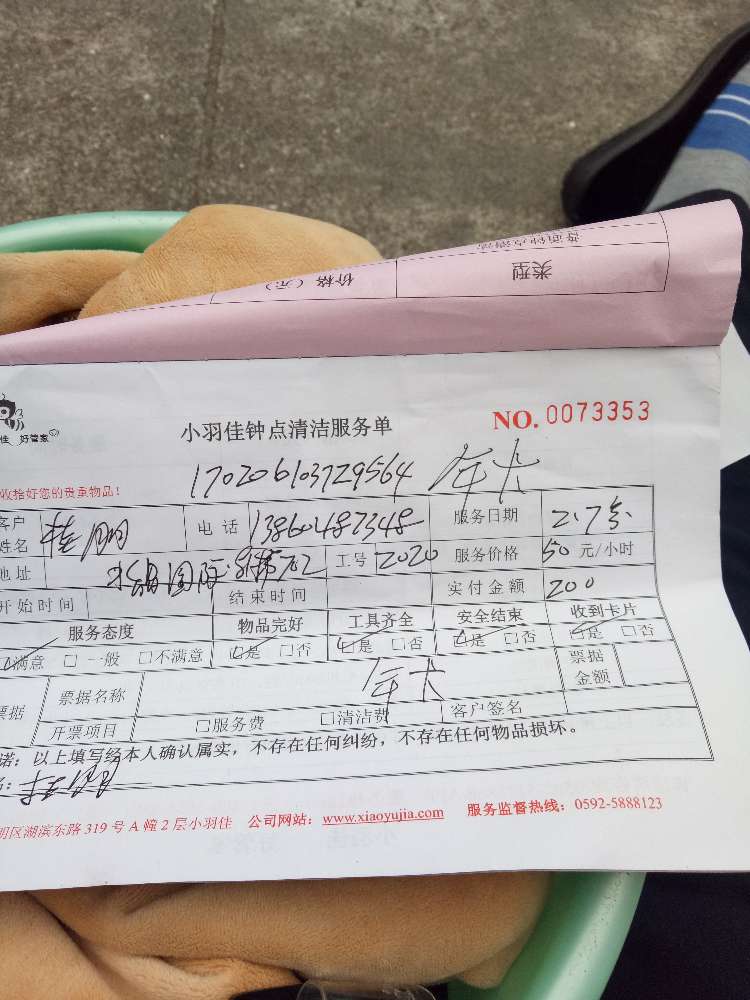 普通钟点清洁
类型 价格（元）
佳 好管家
小羽佳钟点清洁服务单 NO. 0073353
17020610372956​4 年卡
收拾好您的贵重物品！
客户姓名 桂明 电话 13860487348 服务日期 2.7
地址 国际 702 工号 2020 服务价格 50元/小时
开始时间 结束时间 实付金额 200
服务态度 物品完好 工具齐全 安全结束 收到卡片
☑满意 □一般 □不满意 ☑是 □否 ☑是 □否 ☑是 □否 ☑是 □否
票据 票据名称 年卡 票据金额
开票项目 □服务费 □清洁费 客户签名
诺：以上填写经本人确认属实，不存在任何纠纷，不存在任何物品损坏。
明区湖滨东路 319 号 A 幢 2 层小羽佳 公司网站：www.xiaoyujia.com 服务监督热线：0592-5888123